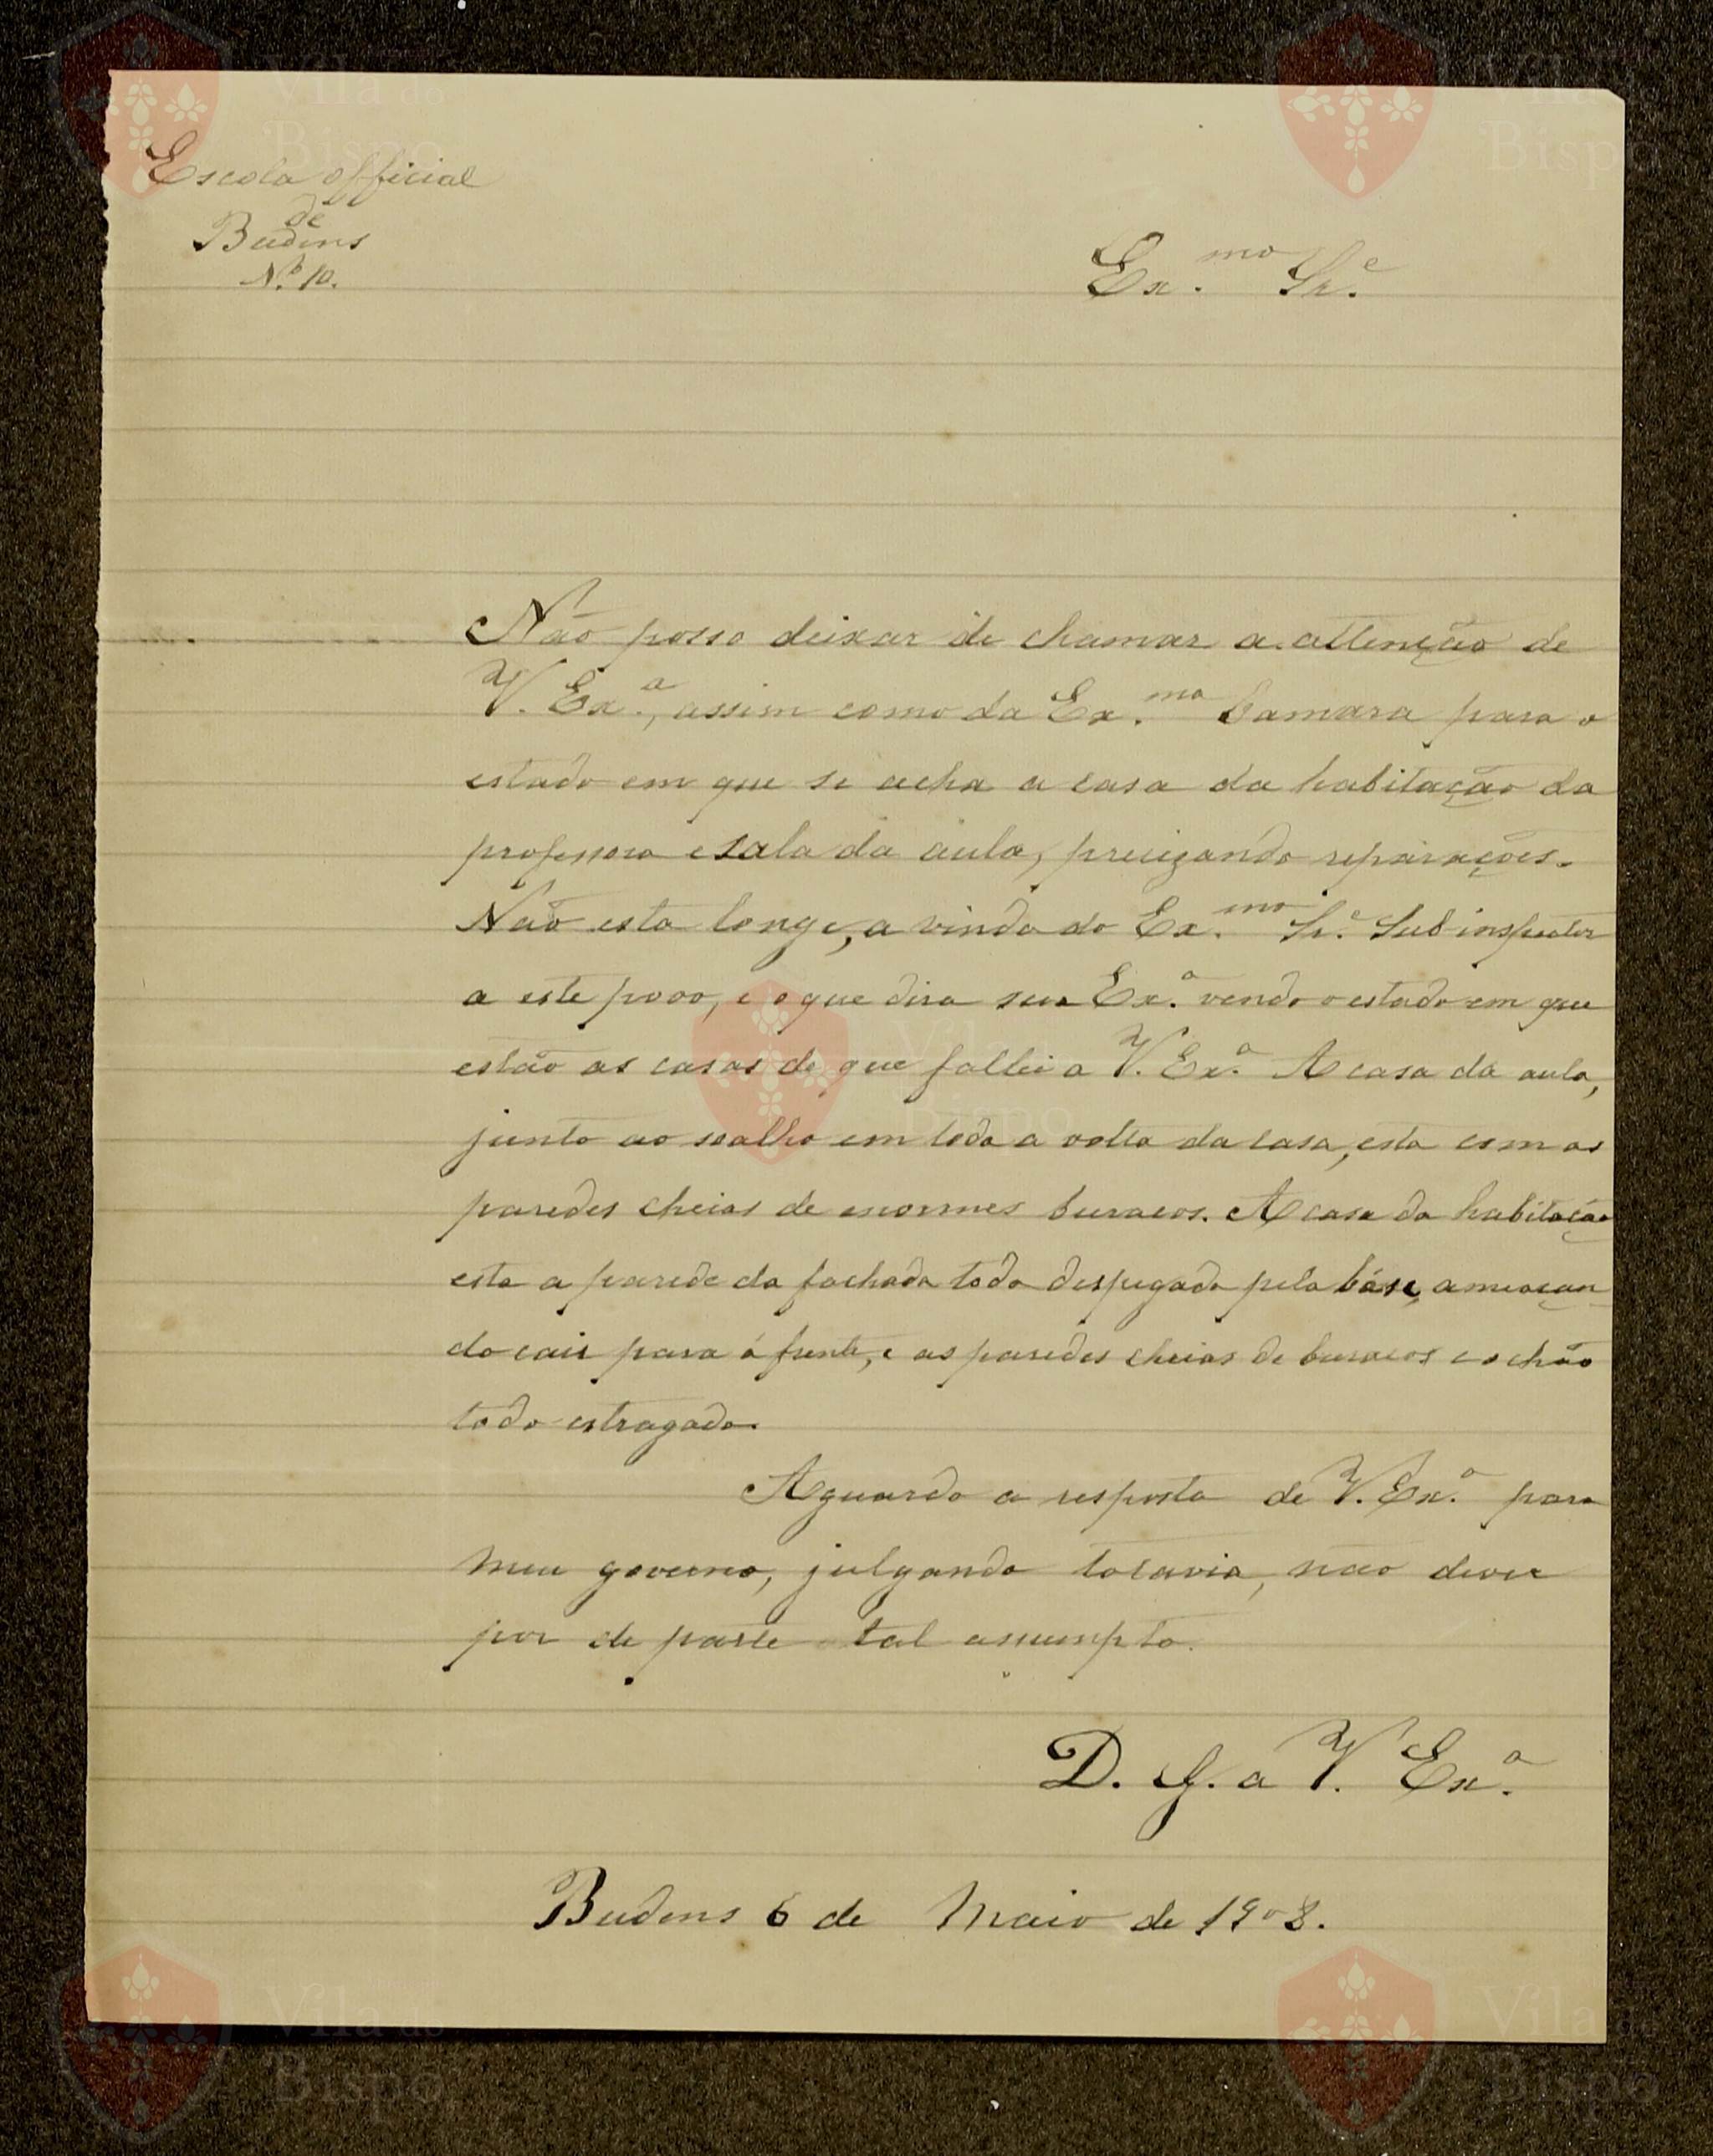 Escola official
de
Budens
N.º 10.
Ex.mo Sr.e
Não posso deixar de chamar a attenção de
V. Ex.a, assim como da Ex.ma Camara para o
estado em que se acha a casa da habitação da
professora e sala da aula, precizando reparações.
Não esta longe, a vinda do Ex.mo Sr.e Sub inspector
a este povo, e o que dira sua Ex.a vendo o estado em que
estão as casas de que fallei a V. Ex.a A casa da aula,
junto ao soalho em toda a volta da casa, esta com as
paredes cheias de enormes buracos. A casa da habitação
esta a parede da fachada toda despegada pela báse, ameaçan
do cair para á frente, e as paredes cheias de buracos e o chão
todo estragado.
Aguardo a resposta de V. Ex.a para
meu governo, julgando todavia, não dever
por de parte tal assumpto.
D. G. a V. Ex.a
Budens 6 de Maio de 1908.
Vila do
Bispo
Vila do
Bispo
Vila do
Bispo
Vila do
Bispo
Vila do
Bispo